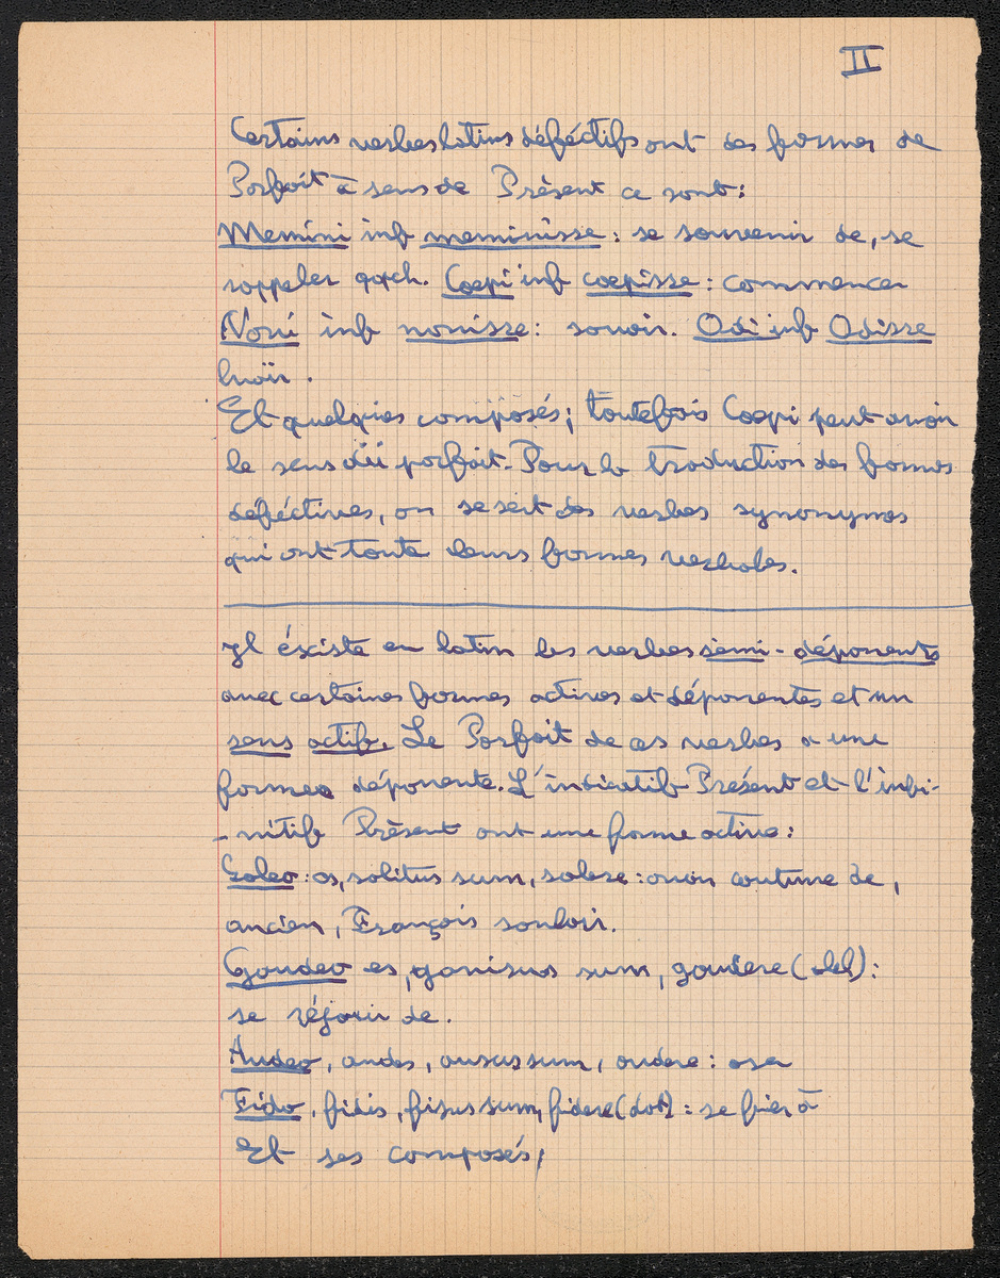 II
Certains verbes latins déféctifs ont des formes de
Parfait à sens de Présent ce sont:
Memini inf meminisse: se souvenir de, se
rappeler qqch. Coepi inf coepisse: commencer
Novi inf novisse: savoir. Odi inf Odisse
haïr.
Et quelques composés; toutefois Coepi peut avoir
le sens du parfait. Pour la traduction des formes
déféctives, on se sert des verbes synonymes
qui ont toute leurs formes verbales.
Il éxiste en latin les verbes sémi-déponents
avec certaines formes actives et déponentes et un
sens actif. Le Parfait de ces verbes a une
formes déponente. L'indicatif Présent et l'infi-
-nitif Présent ont une forme active:
Soleo: es, solitus sum, solere: avoir coutume de,
ancien, François souloir.
Gaudeo es, gavisus sum, gaudere (abl):
se réjouir de.
Audeo, audes, ausus sum, audere: oser
Fido, fidis, fisus sum, fidere (dat): se fier à
Et ses composés,